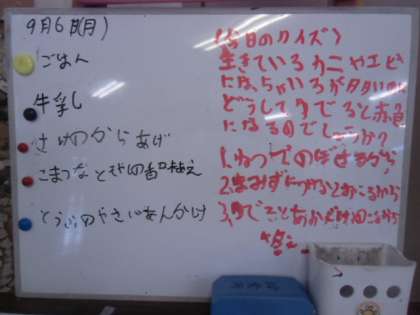 9月6日(月)
ごはん
牛乳
さけのからあげ
こまつなともやしの香味あえ
とうふのやさいあんかけ
(今日のクイズ)
生きているカニやエビ
には、ちゃいろが多いのに
どうしてゆでると赤色
になるのでしょうか?
1.ねつでのぼせるから
2.まみずにつけるとおこるから
3.ゆでると
答え